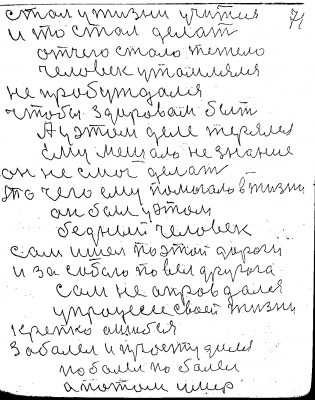 стал у жизни учится 71
и то стал делат
отчего стало тежело
человек утомлялся
не пробуждался
чтобы здоровам быт
А у этом деле терялся
ему мешало не знание
он не смог делат
то чего ему помогало в жизни
он был у этом
бедный человек
сам шел по этой дороги
и за собою повел другога
сам не оправдался
у процесе своей жизни
крепко ошибся
заболел и простудился
поболел по болел
а потом умер